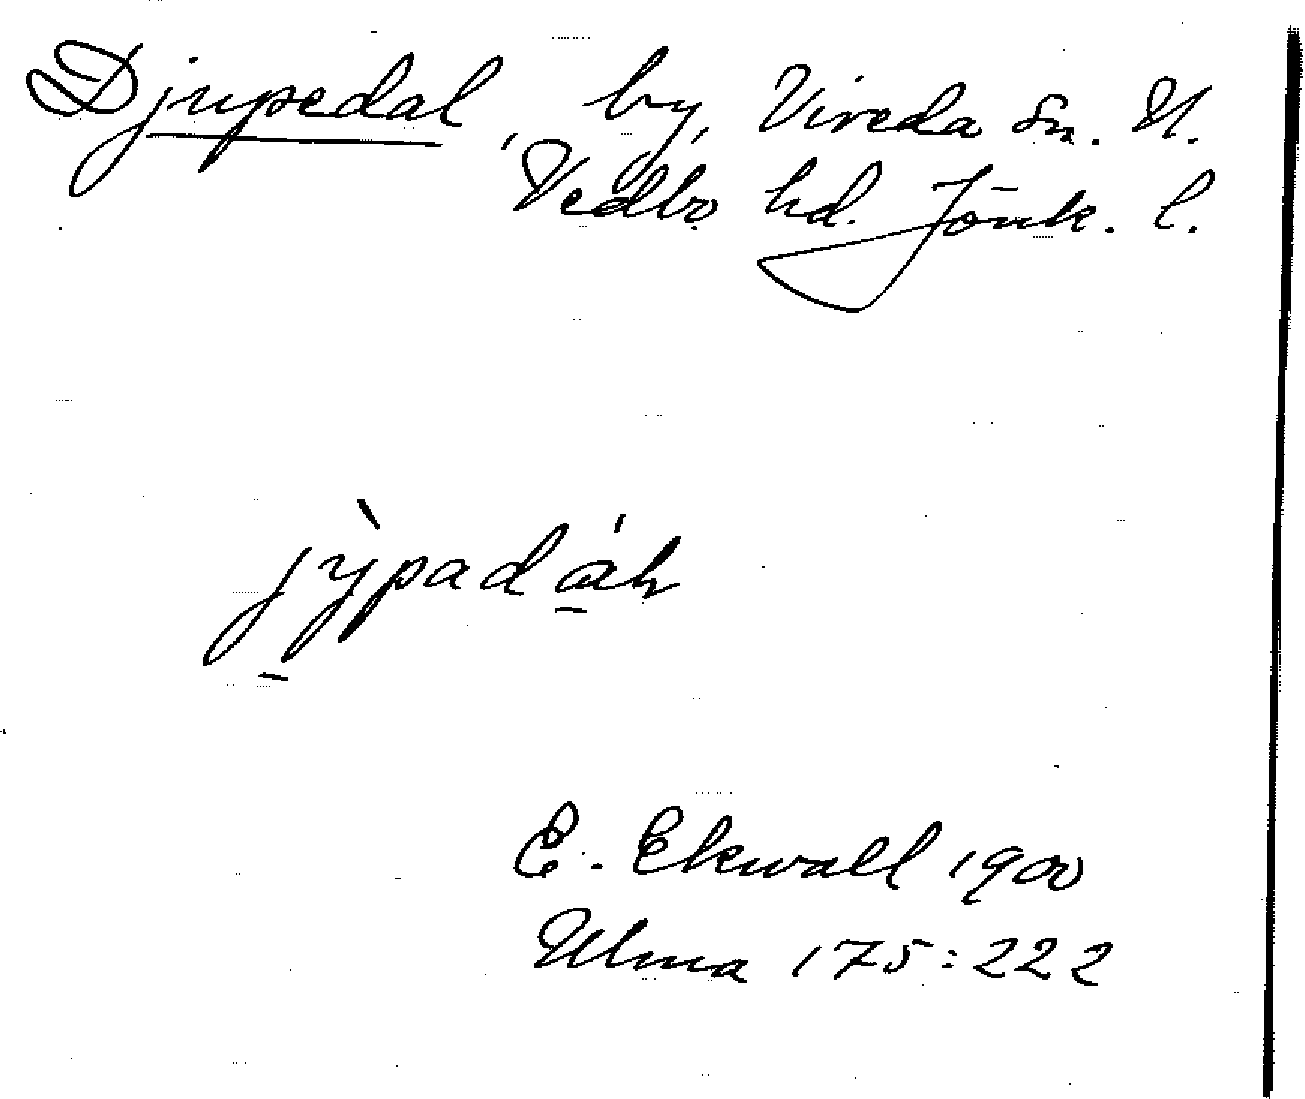 Djupedal, by, Vireda sn. N.
Vedbo hd. Jönk. l.
jỳpadáh
E. Ekwall 1900
Ulma 175:222